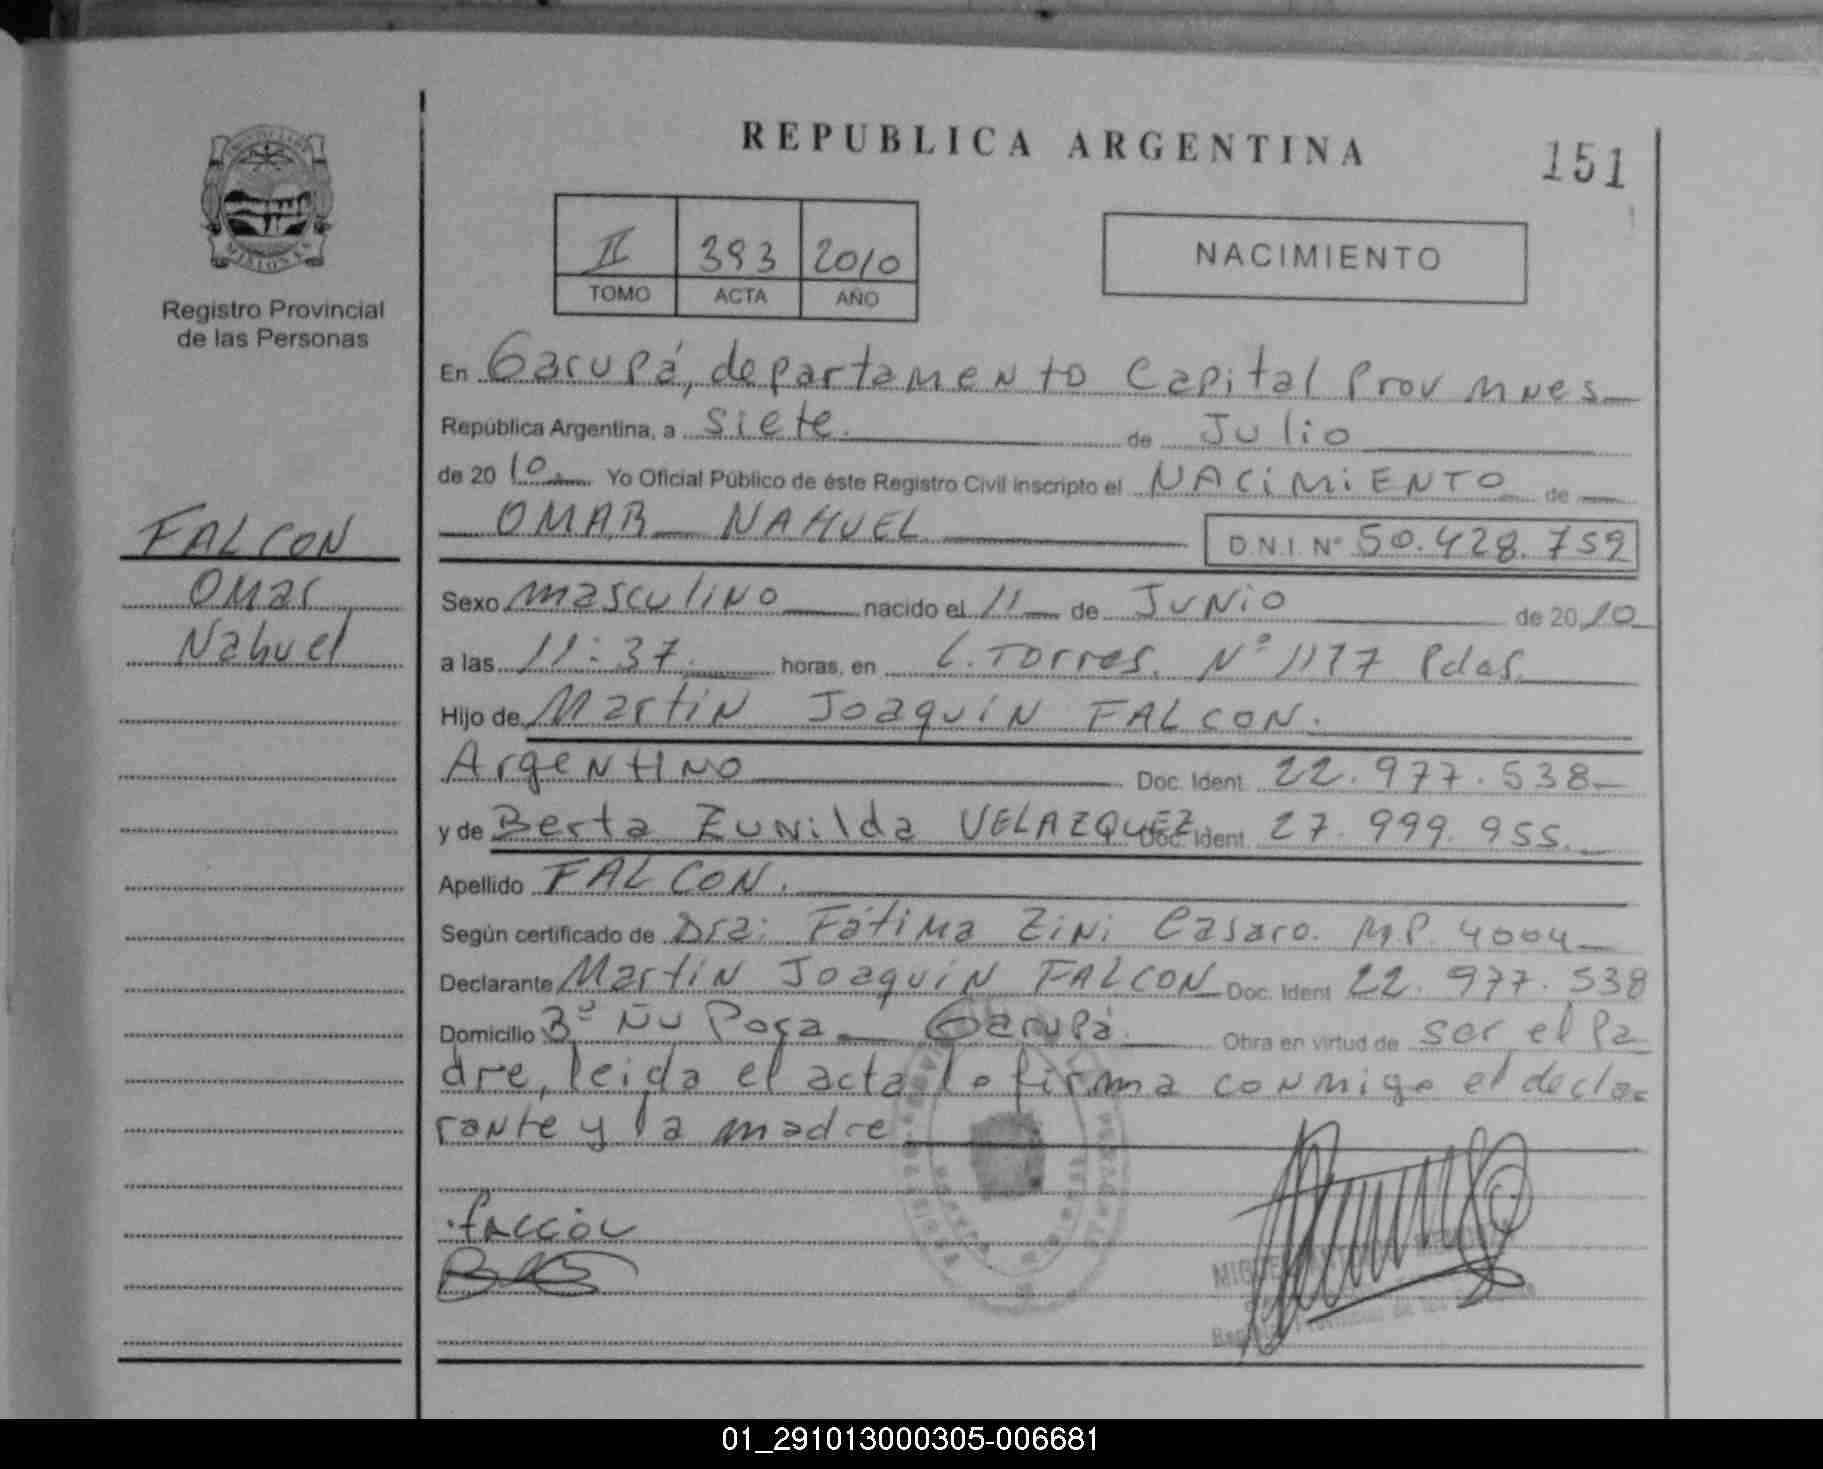 REPUBLICA ARGENTINA
151
II 393 2010
TOMO ACTA AÑO
NACIMIENTO
Registro Provincial
de las Personas
FALCON
Omar
Nahuel
En Garupá, departamento Capital Prov Mnes
República Argentina, a siete de Julio
de 2010 Yo Oficial Público de éste Registro Civil inscripto el NACIMIENTO de
OMAR NAHUEL D.N.I. Nº 50.428.759
Sexo masculino nacido el 11 de Junio de 2010
a las 11:37 horas, en L. Torres. Nº 1177 Pdas.
Hijo de Martin Joaquín FALCON.
Argentino Doc. Ident. 22.977.538
y de Berta Zunilda VELAZQUEZ Doc. Ident. 27.999.955.
Apellido FALCON.
Según certificado de Dra: Fátima Zini Casaro. M.P. 4004
Declarante Martin Joaquín FALCON Doc. Ident. 22.977.538
Domicilio Bº Ñu Pora Garupá. Obra en virtud de ser el Pa
dre, leida el acta la firma conmigo el decla-
rante y la madre
Falcón
01_291013000305-006681